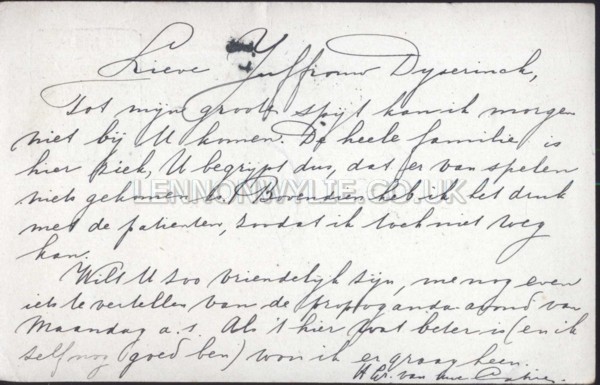 Lieve Juffrouw Dyserinck,
Tot mijne groote spijt kan ik morgen
niet bij U komen. De heele familie is
hier ziek, U begrijpt dus, dat er van spelen
niets gekomen is. Bovendien heb ik het druk
met de patienten, zoodat ik toch niet weg
kan.
LENNONWYLIE.CO.UK
Wilt U zoo vriendelijk zijn, me nog even
iets te vertellen van de propaganda avond van
Maandag a.s. Als 't hier wat beter is (en ik
zelf nog goed ben) wou ik er graag heen.
van der